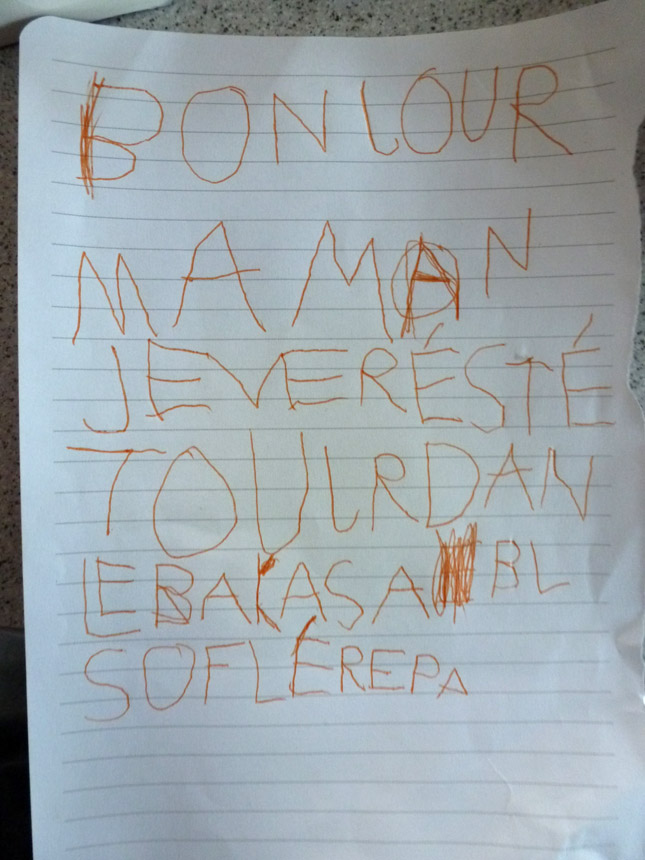 BONJOUR
MAMAN
JEVERÉSTÉ
TOUJRDAN
LEBAKASA BL
SOFLÉREPA